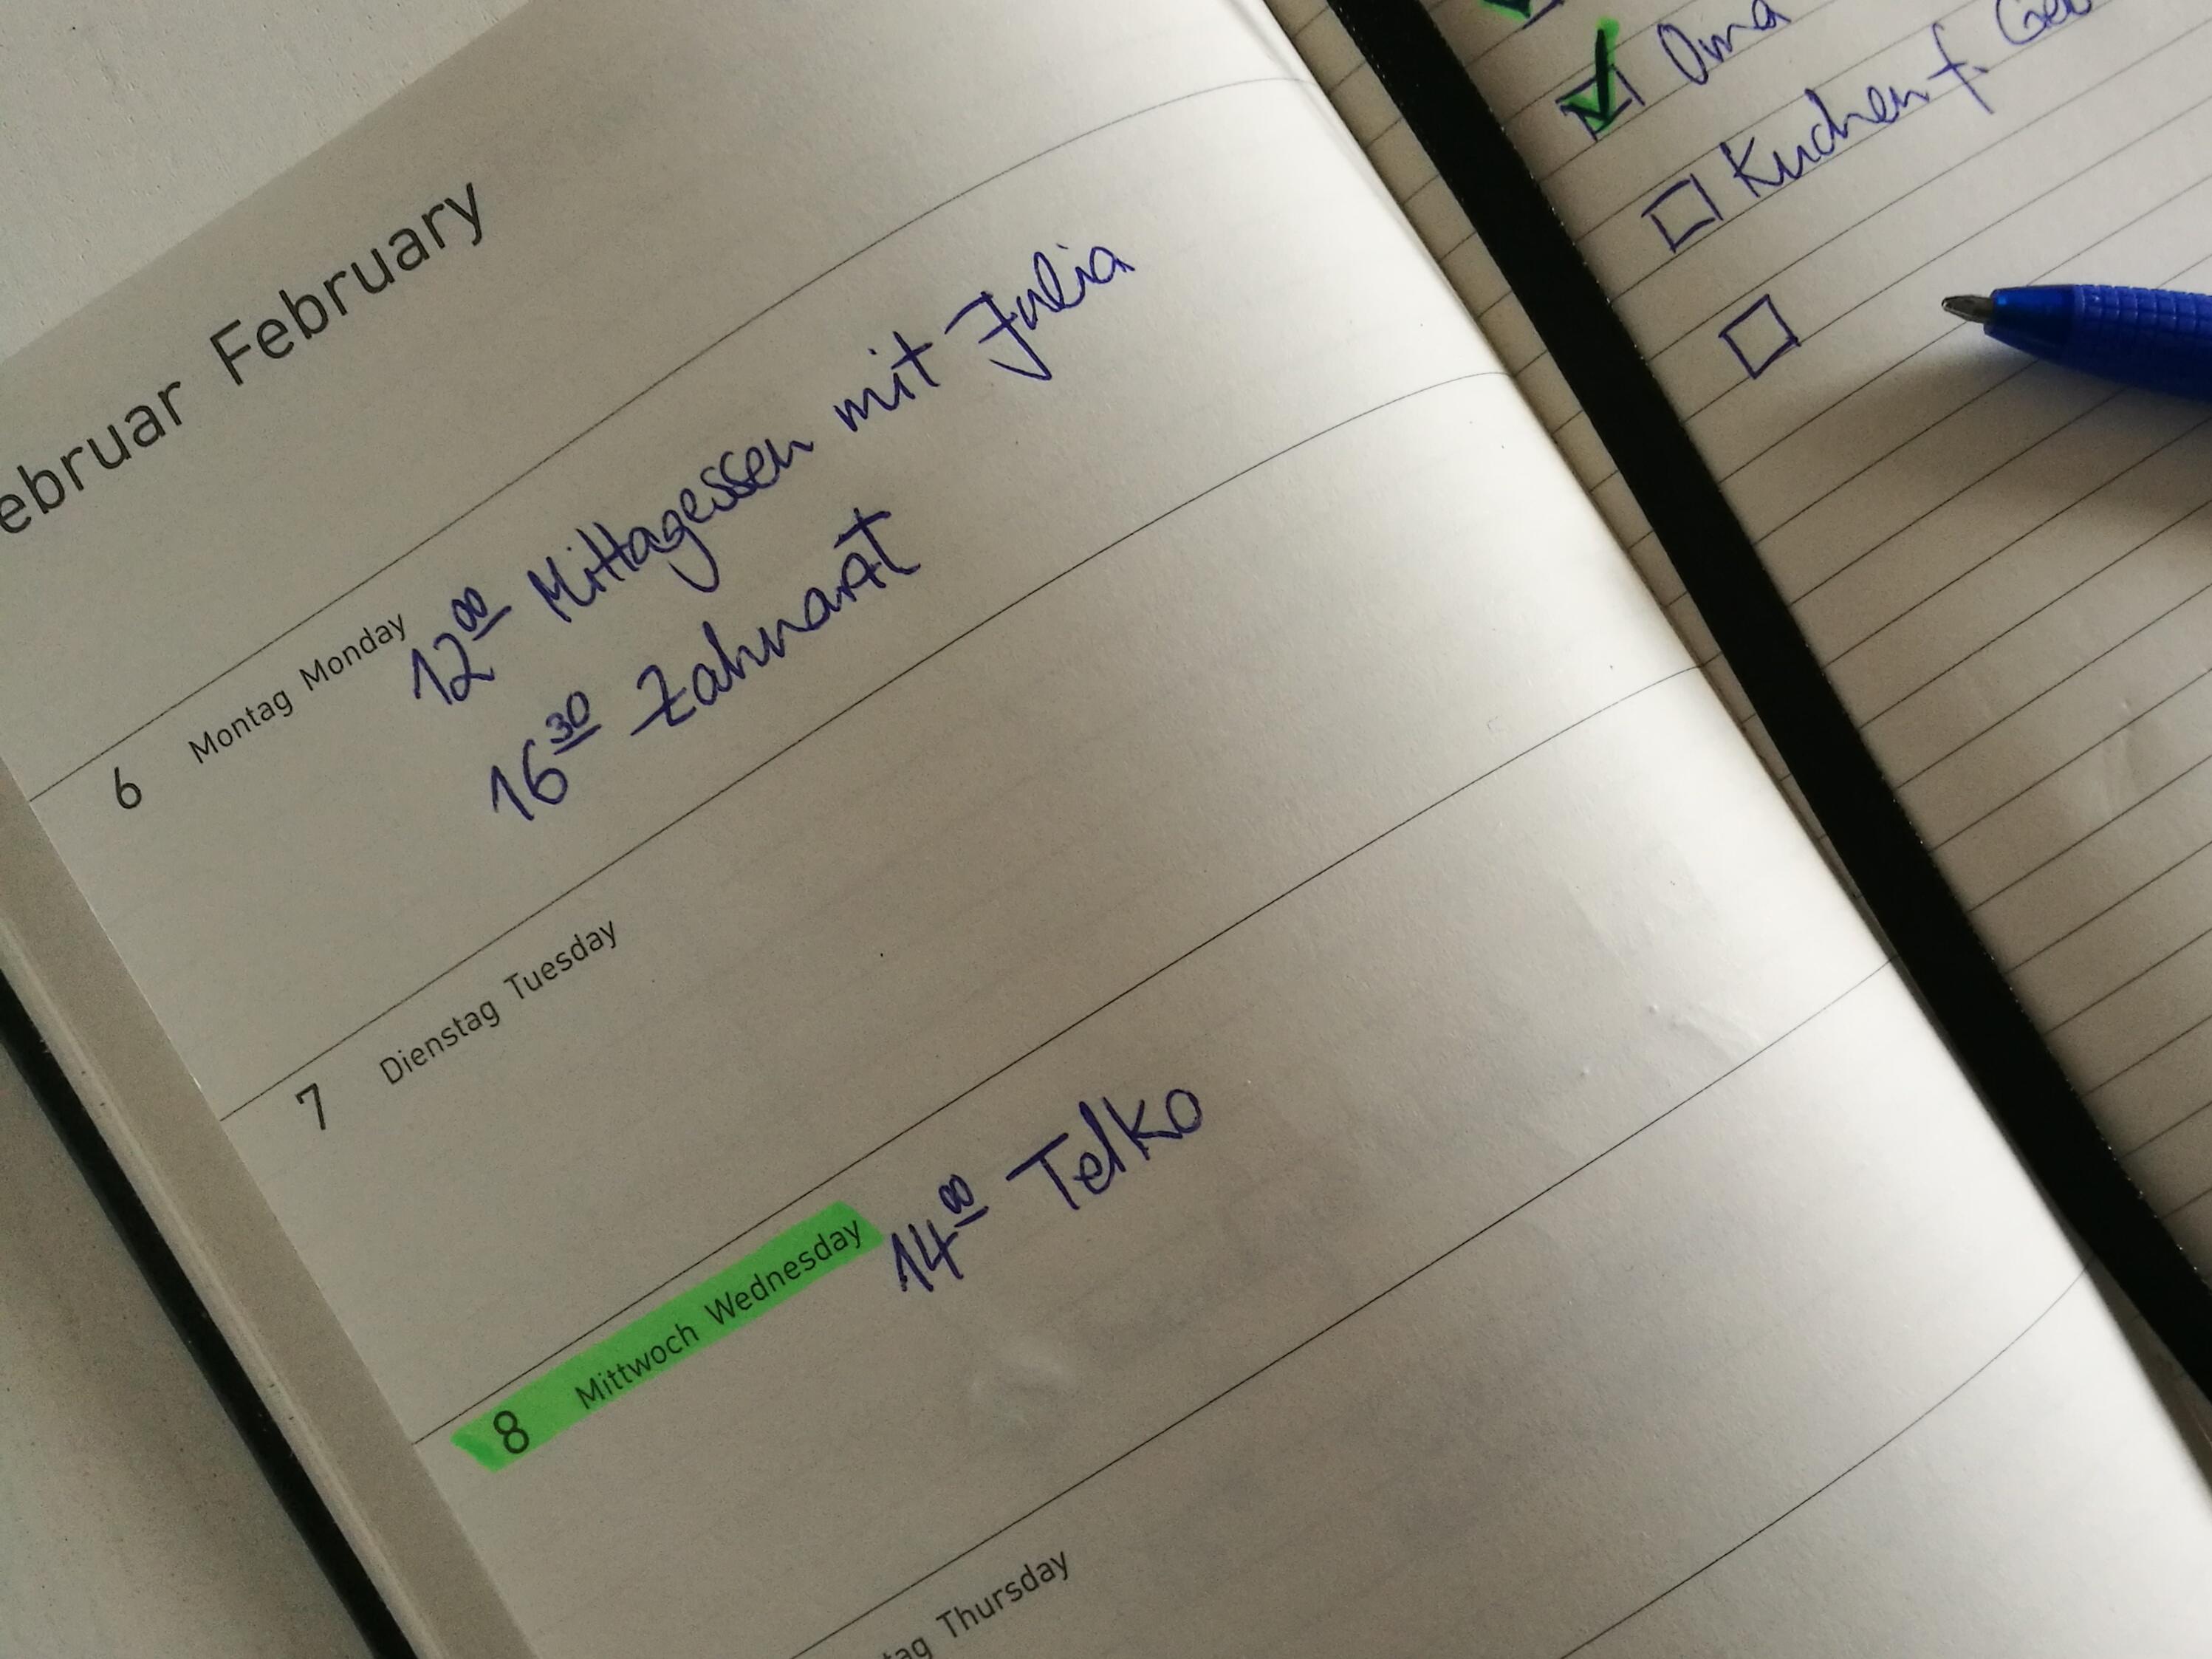 ebruar February
6 Montag Monday
12⁰⁰ Mittagessen mit Julia
16³⁰ Zahnarzt
7 Dienstag Tuesday
8 Mittwoch Wednesday
14⁰⁰ Telko
tag Thursday
Oma
Kuchen f. Geb